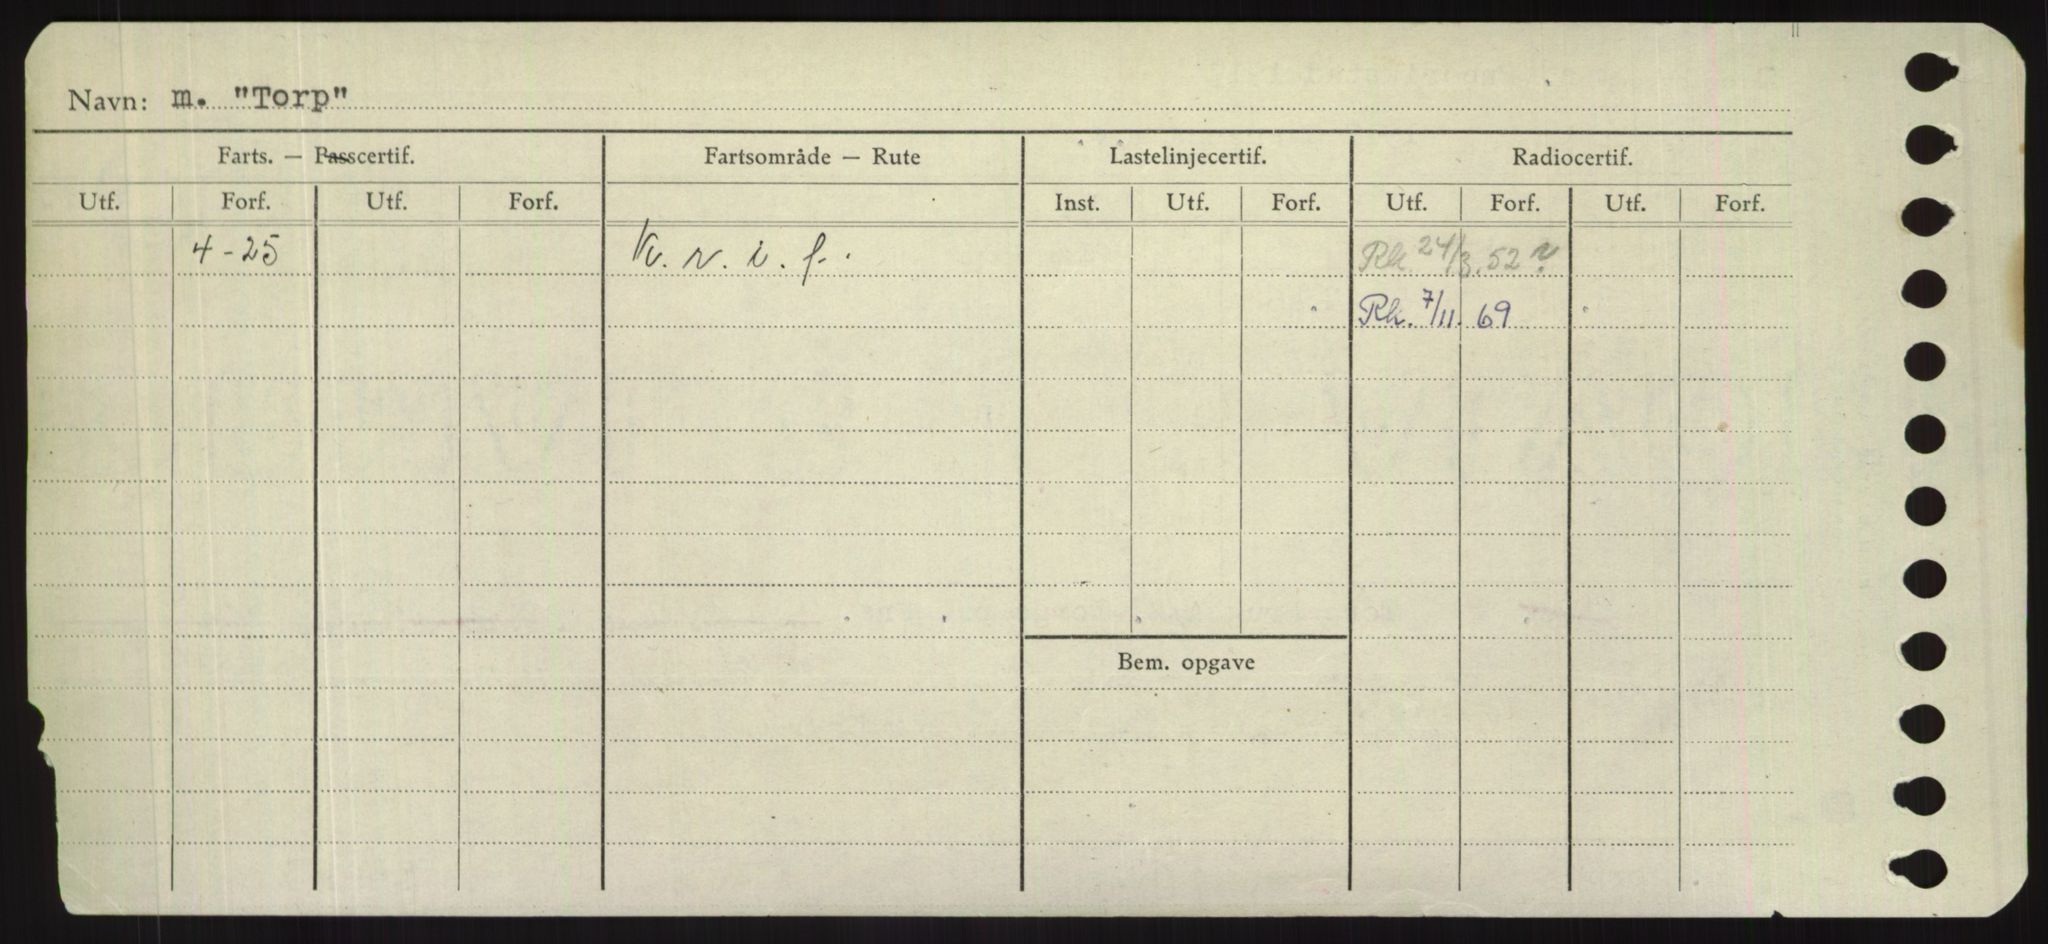 Navn: m. "Torp"
Farts. — Passcertif. Fartsområde — Rute Lastelinjecertif. Radiocertif.
Utf. Forf. Utf. Forf. Inst. Utf. Forf. Utf. Forf. Utf. Forf.
4-25 K. r. i. f. Rk. 24/3. 52
Rk. 7/11. 69
Bem. opgave